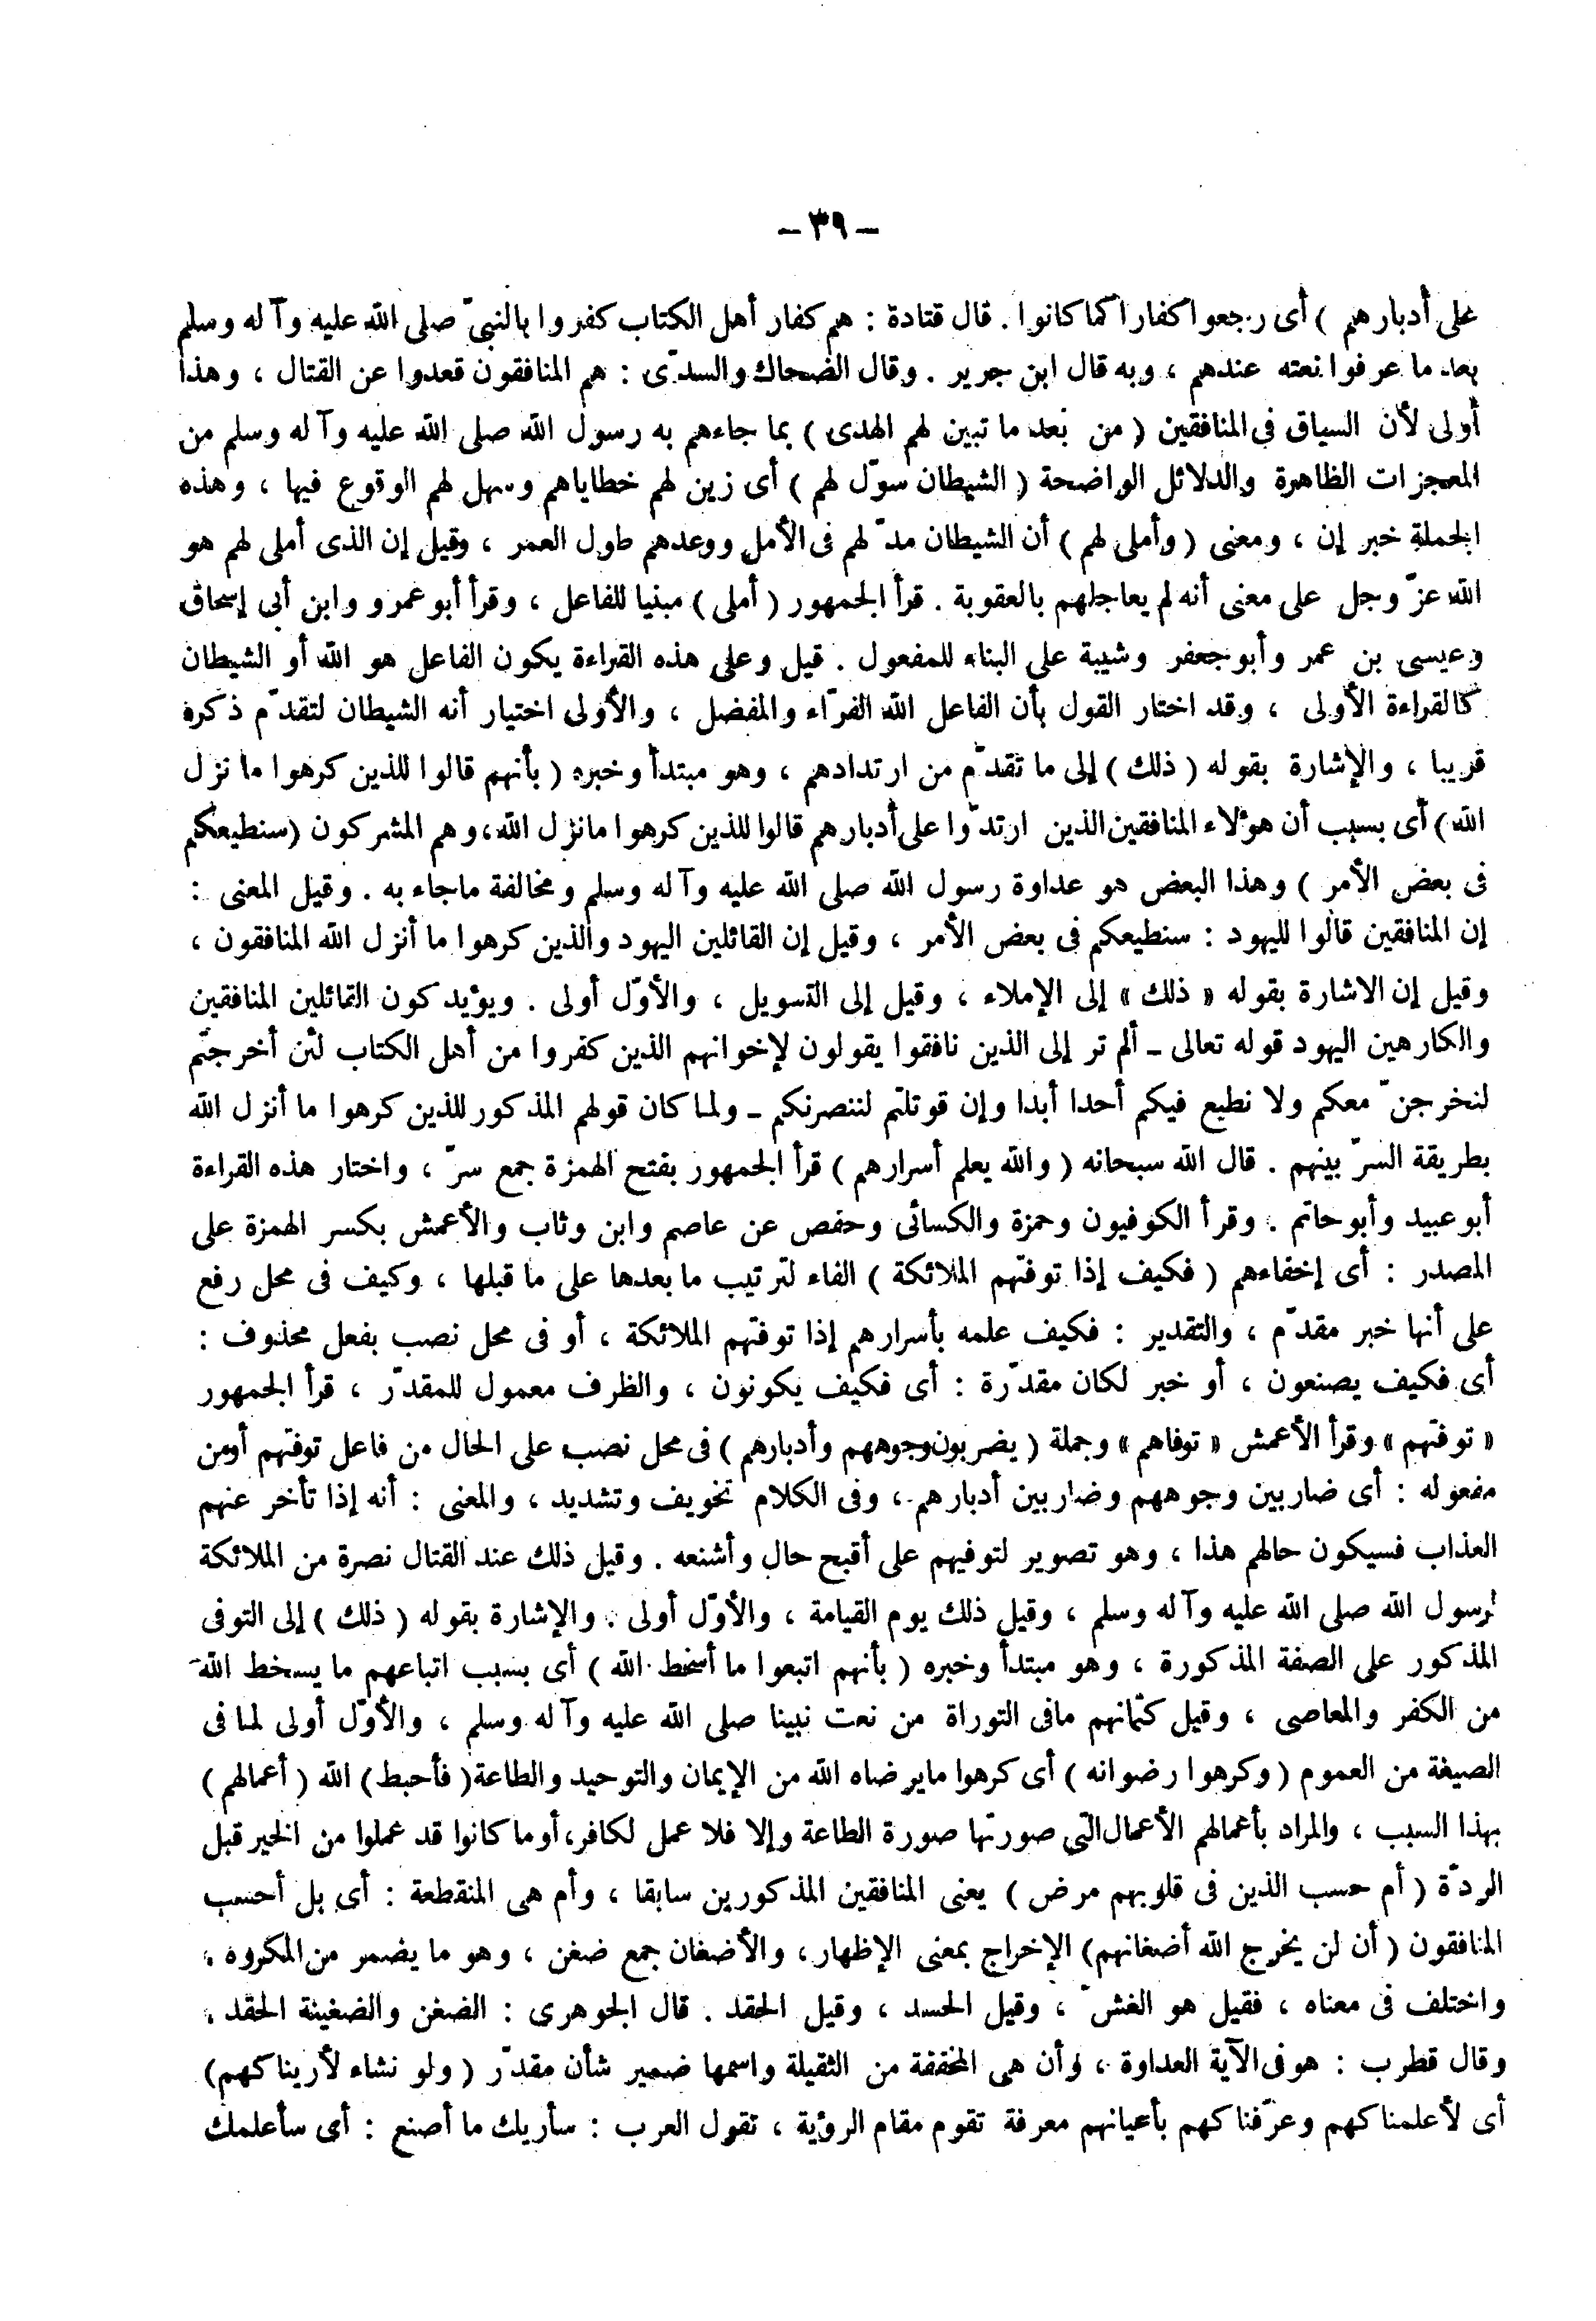 – ٣٩ –
على أدبارهم ) أى رجعوا كفارا كما كانوا . قال قتادة : هم كفار أهل الكتاب كفروا بالنبىّ صلى الله عليه وآله وسلم
بعد ما عرفوا نعته عندهم ، وبه قال ابن جرير . وقال الضحاك والسدّى : هم المنافقون قعدوا عن القتال ، وهذا
أولى لأن السياق فى المنافقين ( من بعد ما تبين لهم الهدى ) بما جاءهم به رسول الله صلى الله عليه وآله وسلم من
المعجزات الظاهرة والدلائل الواضحة ( الشيطان سوّل لهم ) أى زين لهم خطاياهم وسهل لهم الوقوع فيها ، وهذه
الجملة خبر إن ، ومعنى ( وأملى لهم ) أن الشيطان مدّ لهم فى الأمل ووعدهم طول العمر ، وقيل إن الذى أملى لهم هو
الله عزّ وجل على معنى أنه لم يعاجلهم بالعقوبة . قرأ الجمهور ( أملى ) مبنيا للفاعل ، وقرأ أبو عمرو وابن أبى إسحاق
وعيسى بن عمر وأبو جعفر وشيبة على البناء للمفعول . قيل وعلى هذه القراءة يكون الفاعل هو الله أو الشيطان
كالقراءة الأولى ، وقد اختار القول بأن الفاعل الله الفرّاء والمفضل ، والأولى اختيار أنه الشيطان لتقدّم ذكره
قريبا ، والإشارة بقوله ( ذلك ) إلى ما تقدّم من ارتدادهم ، وهو مبتدأ وخبره ( بأنهم قالوا للذين كرهوا ما نزل
الله ) أى بسبب أن هؤلاء المنافقين الذين ارتدّوا على أدبارهم قالوا للذين كرهوا ما نزل الله ، وهم المشركون ( سنطيعكم
فى بعض الأمر ) وهذا البعض هو عداوة رسول الله صلى الله عليه وآله وسلم ومخالفة ماجاء به . وقيل المعنى :
إن المنافقين قالوا لليهود : سنطيعكم فى بعض الأمر ، وقيل إن القائلين اليهود والذين كرهوا ما أنزل الله المنافقون ،
وقيل إن الاشارة بقوله « ذلك » إلى الإملاء ، وقيل إلى التسويل ، والأوّل أولى . ويؤيد كون القائلين المنافقين
والكارهين اليهود قوله تعالى – ألم تر إلى الذين نافقوا يقولون لإخوانهم الذين كفروا من أهل الكتاب لئن أخرجتم
لنخرجنّ معكم ولا نطيع فيكم أحدا أبدا وإن قوتلتم لننصرنكم – ولما كان قولهم المذكور للذين كرهوا ما أنزل الله
بطريقة السرّ بينهم . قال الله سبحانه ( والله يعلم أسرارهم ) قرأ الجمهور بفتح الهمزة جمع سرّ ، واختار هذه القراءة
أبو عبيد وأبو حاتم . وقرأ الكوفيون وحمزة والكسائى وحفص عن عاصم وابن وثاب والأعمش بكسر الهمزة على
المصدر : أى إخفاءهم ( فكيف إذا توفتهم الملائكة ) الفاء لترتيب ما بعدها على ما قبلها ، وكيف فى محل رفع
على أنها خبر مقدّم ، والتقدير : فكيف علمه بأسرارهم إذا توفتهم الملائكة ، أو فى محل نصب بفعل محذوف :
أى فكيف يصنعون ، أو خبر لكان مقدّرة : أى فكيف يكونون ، والظرف معمول للمقدّر ، قرأ الجمهور
« توفتهم » وقرأ الأعمش « توفاهم » وجملة ( يضربون وجوههم وأدبارهم ) فى محل نصب على الحال من فاعل توفتهم أومن
مفعوله : أى ضاربين وجوههم وضاربين أدبارهم ، وفى الكلام تخويف وتشديد ، والمعنى : أنه إذا تأخر عنهم
العذاب فسيكون حالهم هذا ، وهو تصوير لتوفيهم على أقبح حال وأشنعه . وقيل ذلك عند القتال نصرة من الملائكة
لرسول الله صلى الله عليه وآله وسلم ، وقيل ذلك يوم القيامة ، والأوّل أولى . والإشارة بقوله ( ذلك ) إلى التوفى
المذكور على الصفة المذكورة ، وهو مبتدأ وخبره ( بأنهم اتبعوا ما أسخط الله ) أى بسبب اتباعهم ما يسخط الله
من الكفر والمعاصى ، وقيل كتمانهم مافى التوراة من نعت نبينا صلى الله عليه وآله وسلم ، والأوّل أولى لما فى
الصيغة من العموم ( وكرهوا رضوانه ) أى كرهوا مايرضاه الله من الإيمان والتوحيد والطاعة ( فأحبط ) الله ( أعمالهم )
بهذا السبب ، والمراد بأعمالهم الأعمال التى صورتها صورة الطاعة وإلا فلا عمل لكافر ، أو ما كانوا قد عملوا من الخير قبل
الردّة ( أم حسب الذين فى قلوبهم مرض ) يعنى المنافقين المذكورين سابقا ، وأم هى المنقطعة : أى بل أحسب
المنافقون ( أن لن يخرج الله أضغانهم ) الإخراج بمعنى الإظهار ، والأضغان جمع ضغن ، وهو ما يضمر من المكروه .
واختلف فى معناه ، فقيل هو الغشّ ، وقيل الحسد ، وقيل الحقد . قال الجوهرى : الضغن والضغينة الحقد .
وقال قطرب : هو فى الآية العداوة ، وأن هى المخففة من الثقيلة واسمها ضمير شأن مقدّر ( ولو نشاء لأريناكهم )
أى لأعلمناكهم وعرّفناكهم بأعيانهم معرفة تقوم مقام الرؤية ، تقول العرب : سأريك ما أصنع : أى سأعلمك